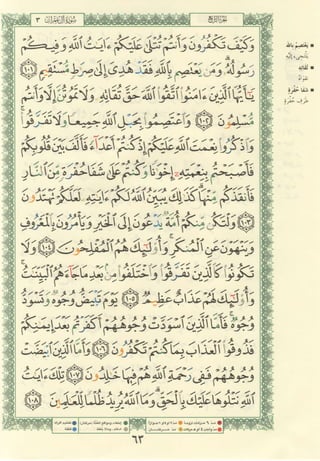 سُورَةُ آلِ عِمْرَان ٣
الجزء الرابع
وَكَيْفَ تَكْفُرُونَ وَأَنتُمْ تُتْلَىٰ عَلَيْكُمْ ءَايَٰتُ ٱللَّهِ وَفِيكُمْ
رَسُولُهُۥ ۗ وَمَن يَعْتَصِم بِٱللَّهِ فَقَدْ هُدِىَ إِلَىٰ صِرَٰطٍ مُّسْتَقِيمٍ ١٠١
يَٰٓأَيُّهَا ٱلَّذِينَ ءَامَنُوا۟ ٱتَّقُوا۟ ٱللَّهَ حَقَّ تُقَاتِهِۦ وَلَا تَمُوتُنَّ إِلَّا وَأَنتُم
مُّسْلِمُونَ ١٠٢ وَٱعْتَصِمُوا۟ بِحَبْلِ ٱللَّهِ جَمِيعًا وَلَا تَفَرَّقُوا۟ ۚ
وَٱذْكُرُوا۟ نِعْمَتَ ٱللَّهِ عَلَيْكُمْ إِذْ كُنتُمْ أَعْدَآءً فَأَلَّفَ بَيْنَ قُلُوبِكُمْ
فَأَصْبَحْتُم بِنِعْمَتِهِۦٓ إِخْوَٰنًا وَكُنتُمْ عَلَىٰ شَفَا حُفْرَةٍ مِّنَ ٱلنَّارِ
فَأَنقَذَكُم مِّنْهَا ۗ كَذَٰلِكَ يُبَيِّنُ ٱللَّهُ لَكُمْ ءَايَٰتِهِۦ لَعَلَّكُمْ تَهْتَدُونَ
١٠٣ وَلْتَكُن مِّنكُمْ أُمَّةٌ يَدْعُونَ إِلَى ٱلْخَيْرِ وَيَأْمُرُونَ بِٱلْمَعْرُوفِ
وَيَنْهَوْنَ عَنِ ٱلْمُنكَرِ ۚ وَأُو۟لَٰٓئِكَ هُمُ ٱلْمُفْلِحُونَ ١٠٤ وَلَا
تَكُونُوا۟ كَٱلَّذِينَ تَفَرَّقُوا۟ وَٱخْتَلَفُوا۟ مِنۢ بَعْدِ مَا جَآءَهُمُ ٱلْبَيِّنَٰتُ ۚ
وَأُو۟لَٰٓئِكَ لَهُمْ عَذَابٌ عَظِيمٌ ١٠٥ يَوْمَ تَبْيَضُّ وُجُوهٌ وَتَسْوَدُّ
وُجُوهٌ ۚ فَأَمَّا ٱلَّذِينَ ٱسْوَدَّتْ وُجُوهُهُمْ أَكَفَرْتُم بَعْدَ إِيمَٰنِكُمْ
فَذُوقُوا۟ ٱلْعَذَابَ بِمَا كُنتُمْ تَكْفُرُونَ ١٠٦ وَأَمَّا ٱلَّذِينَ ٱبْيَضَّتْ
وُجُوهُهُمْ فَفِى رَحْمَةِ ٱللَّهِ هُمْ فِيهَا خَٰلِدُونَ ١٠٧ تِلْكَ ءَايَٰتُ
ٱللَّهِ نَتْلُوهَا عَلَيْكَ بِٱلْحَقِّ ۗ وَمَا ٱللَّهُ يُرِيدُ ظُلْمًا لِّلْعَٰلَمِينَ ١٠٨
يعتصم بالله
يلتجئ إليه
تقاته
شفا حفرة
طرف حفرة
٦٣